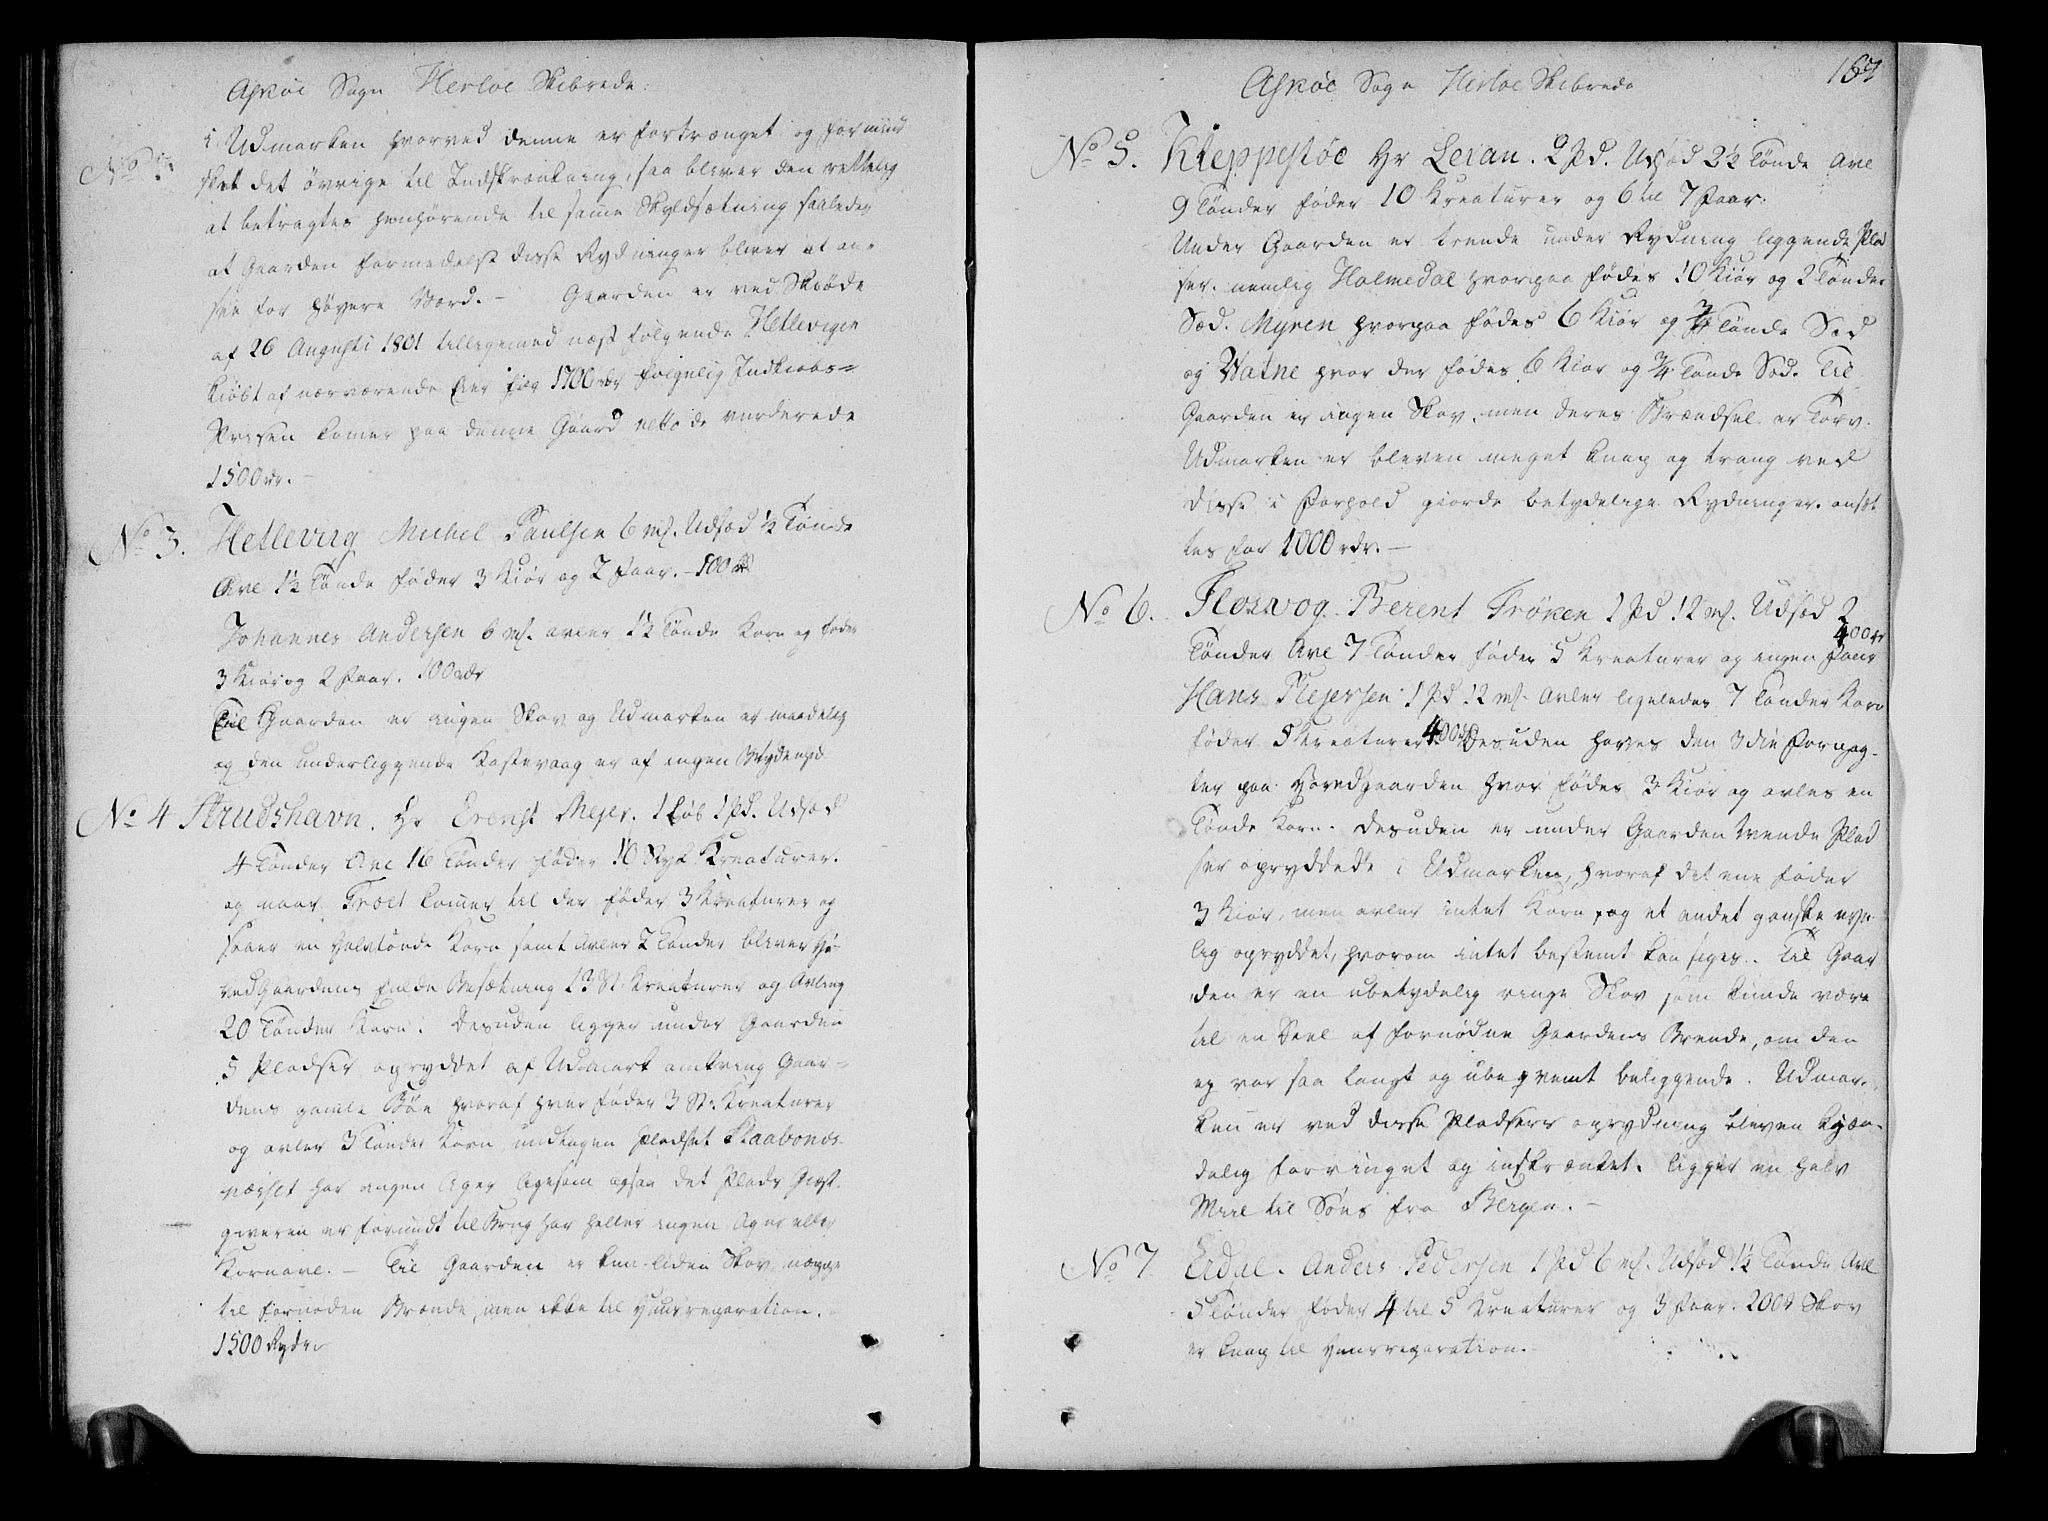 Askøe Sogn Herløe Skibrede.
i Udmarken hvorved denne er fortrænget og formind
sket det øvrige til Indskrænkning, saa bliver den rettelig
at betragtes henhørende til samme Skyldsætning saaledes
at Gaarden formedelst disse Rydninger bliver at an-
see for høyere Værd. – Gaarden er ved Skiøde
af 26 Augusti 1801 tilligemed næst følgende Hetlevigen
kiøbt af nærværende Eier for 1700 rdr følgelig Indkiøbs=
Prisen komer paa denne Gaard netto de vurderede
1500 rdr. –
No 3. Hetlevig Michel Paulsen 6 mf. Udsæd ½ Tønde
Avl 1½ Tønde føder 3 Kiør og 2 Faar. – 100 rdr
Johannes Andersen 6 mf. avler 1½ Tønde Korn og føder
3 Kiør og 2 Faar. 100 rdr
Til Gaarden er ingen Skov og Udmarken er maadelig
og den underliggende Kastevaag er af ingen Betydenhed
No 4 Strudshavn. Hr Ernst Mejer. 1 Løb 1 Pd. Udsæd
4 Tønder Avl 16 Tønder føder 10 Styk Kreaturer.
og naar Træet komer til der føder 3 Kreaturer og
saaer en halvtønde Korn samt avler 2 Tønder bliver Ho-
vedgaardens fulde Besætning 13 St. Kreaturer og Avling
20 Tønder Korn. Desuden ligger under Gaarden
5 Pladser opryddet af Udmark omkring Gaar-
dens gamle Bøe hvoraf hver føder 3 St: Kreaturer
og avler 3 Tønder Korn, undtagen Pladset Skaabenæs
hvilket har ingen Ager ligesom ogsaa det Plads Giest
giveren er forundt til Brug har heller ingen Ager eller
Kornavl. – Til Gaarden er kun liden Skov, næppe
til fornøden Brænde, men ikke til Huusreparation.
1500 Rydr
Askøe Sogn Herløe Skibrede
No 5. Kleppestøe Hr Leran. 2 Pd. Udsæd 2½ Tønde Avl
9 Tønder føder 10 Kreaturer og 6 til 7 Faar.
Under Gaarden er trende under Rydning liggende Plad
ser. nemlig Holmedal hvorpaa fødes 10 Kiør og 2 Tønder
Sæd. Myren hvorpaa fødes 6 Kiør og ¾ Tønde Sæd
og Vatne hvor der fødes 6 Kiør og ¾ Tønde Sæd. Til
Gaarden er ingen Skov, men deres Brændsel er Torv.
Udmarken er bleven meget knap og trang ved
disse i Forhold giorde betydelige Rydninger. ansæt
tes for 1000 rdr. –
No 6. Florvog. Berent Frøken 1 Pd 12 mf. Udsæd 2
Tønder Avl 7 Tønder føder 5 Kreaturer og ingen Faar 400 rdr
Hans Mejersen 1 Pd 12 mf. Avler ligeledes 7 Tønder Korn
føder 5 Kreaturer. 400 rdr Desuden haves den 3die Forpag-
ter paa Hovedgaarden hvor fødes 3 Kiør og avles en
Tønde Korn. Desuden er under Gaarden tvende Plad
ser opryddede i Udmarken, hvoraf det ene føder
3 Kiør, men avler intet Korn, og et andet ganske nye-
lig opryddet, hvorom intet bestemt kan siges. Til Gaar
den er en ubetydelig ringe Skov som kunde være
til en Deel af fornødne Gaardens Brende, om den
ey var saa langt og ubeqvemt beliggende. Udmar-
ken er ved disse Pladsers oprydning bleven kjæn-
delig forringet og inskrænket. ligger en halv
Miil til Søes fra Bergen. –
No 7 Erdal. Anders Pedersen 1 Pd 6 mf. Udsæd 1½ Tønde Avl
5 Tønder føder 4 til 5 Kreaturer og 3 Faar. 200 Skov
er knap til Huusreparation. –